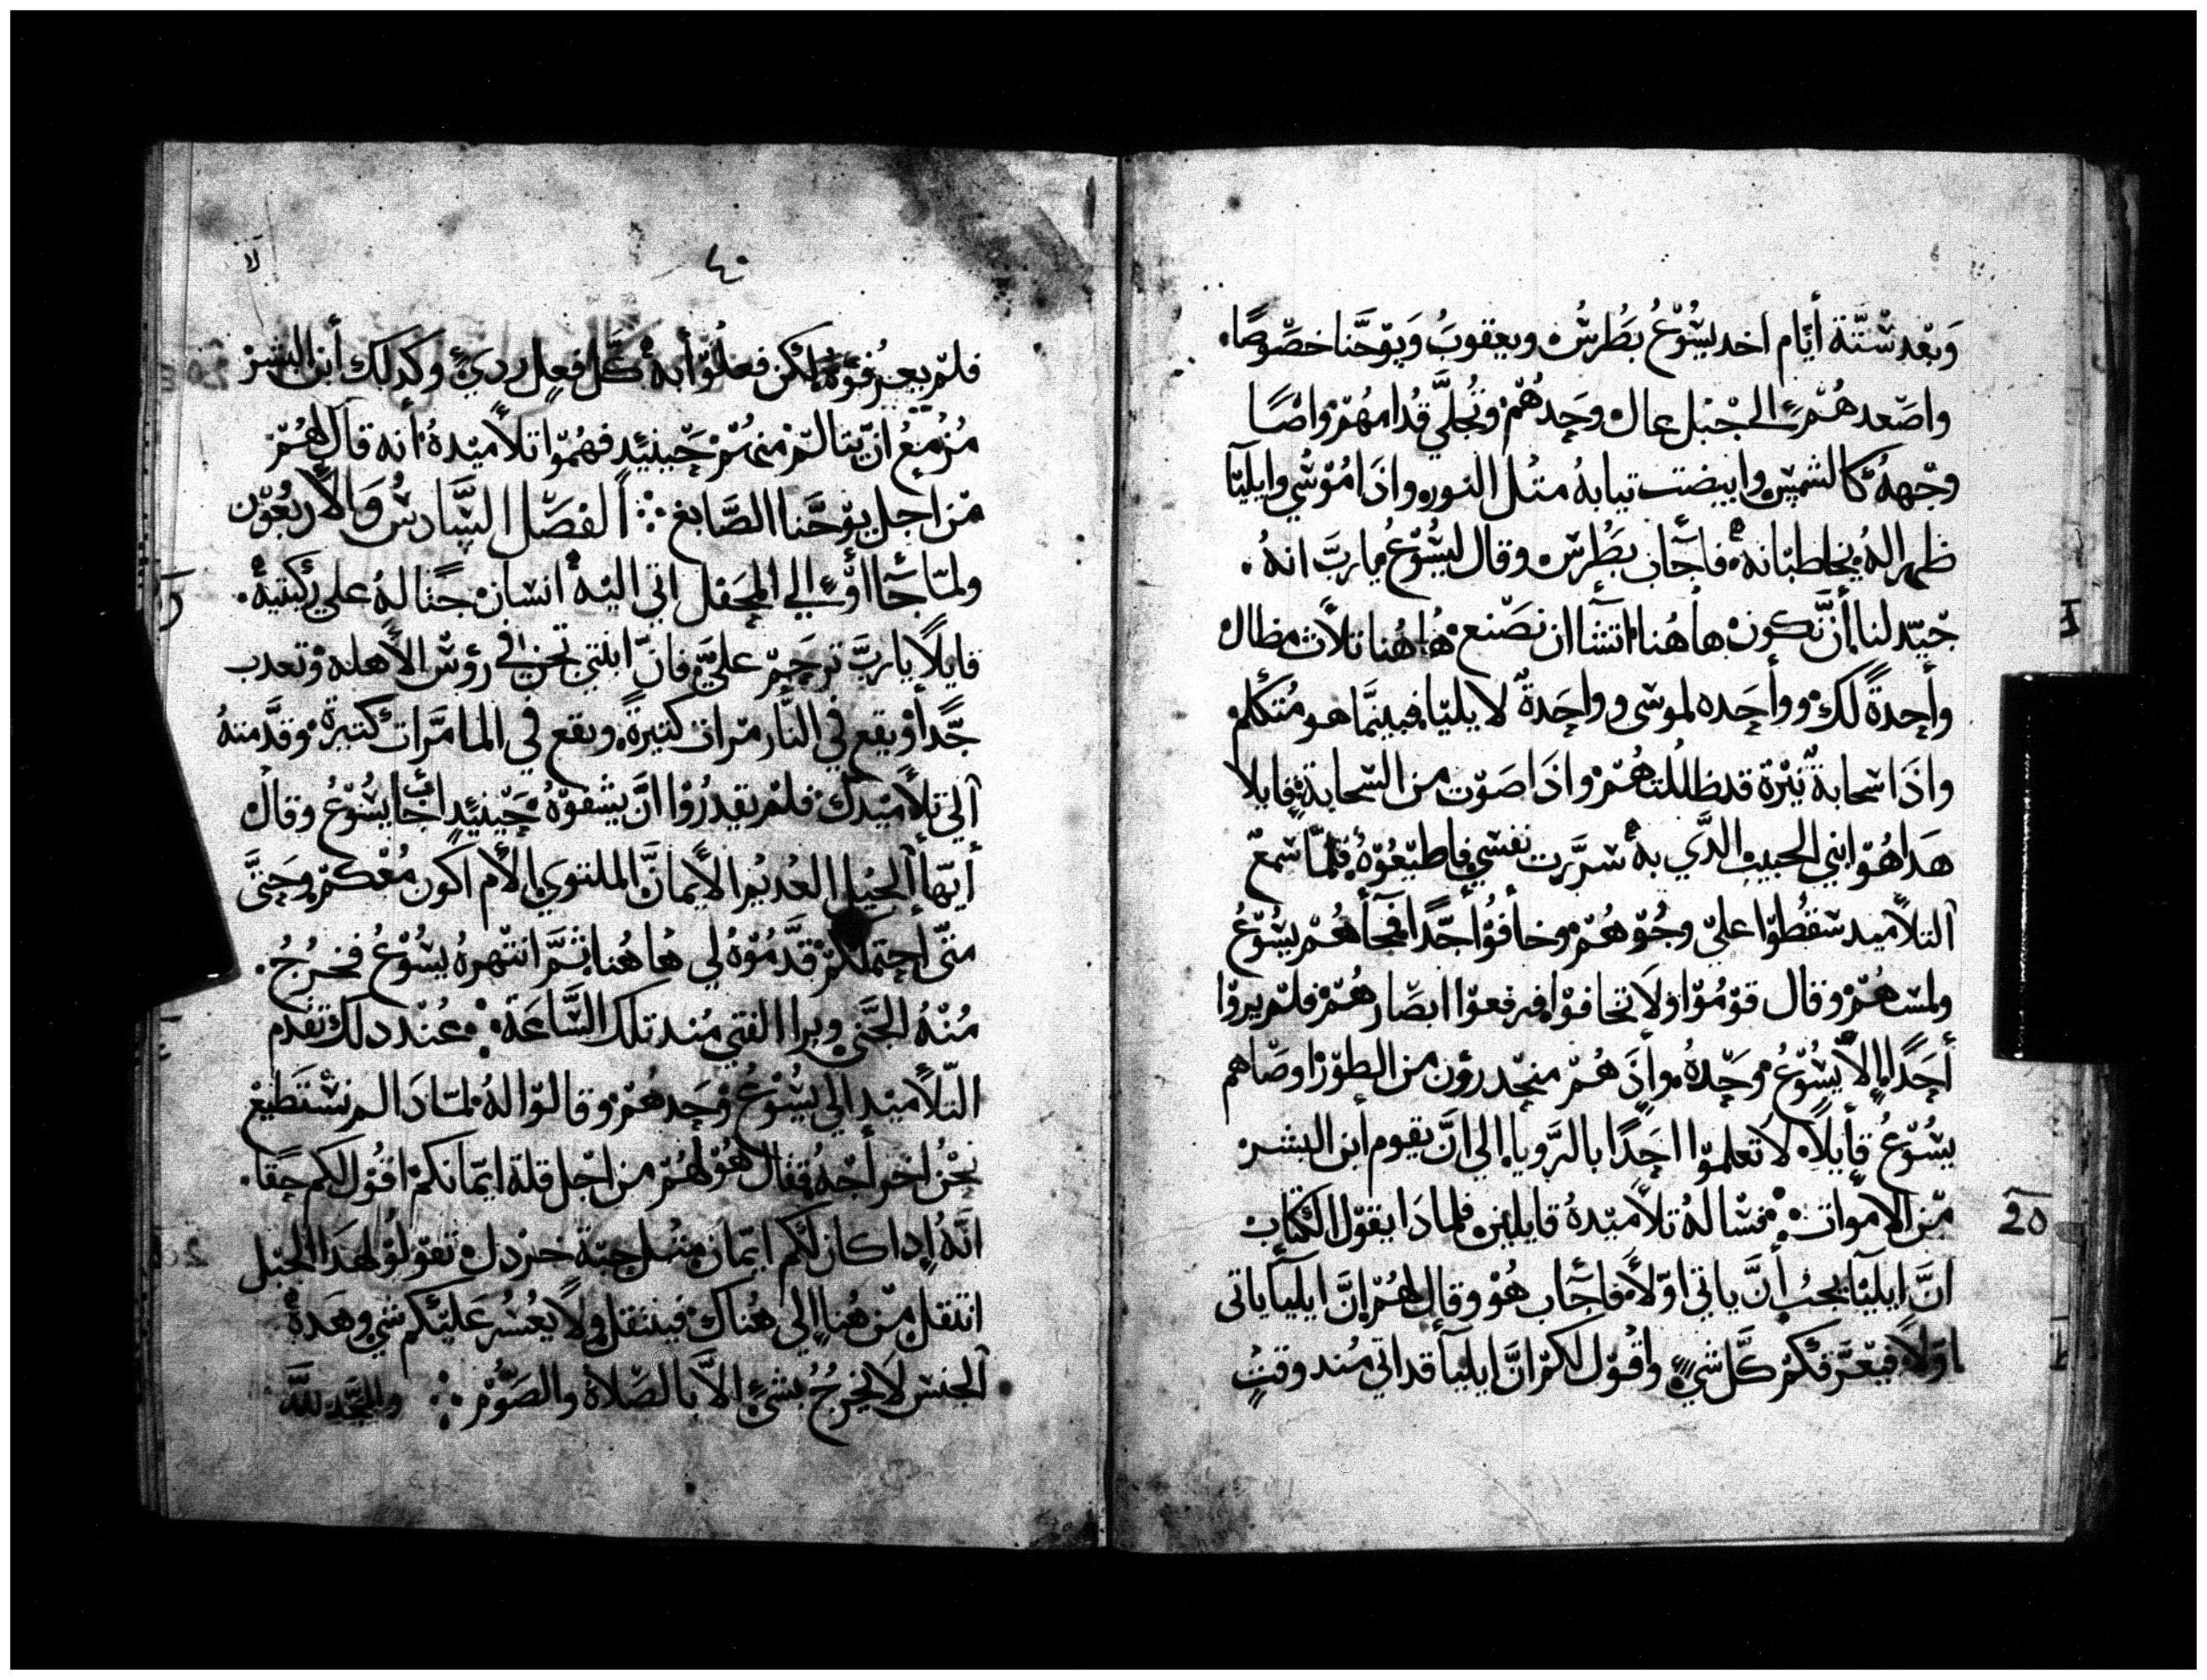 وَبَعْد سْتّة أيّام اخد يسُوْعُ بطرسُ ويعقوبُ وَيوْحَنا خصّوصًا.
واصْعد هُمْ إلى جْبل عال وحَدهُمْ وتجلّي قدامهُمْ واضا
وجْههُ كالشمس وابيضت تيابهُ متل النور. واذا مُوْسي وايليا
ظهرا لهُ يخاطبانهْ. فاجاب بطرس وقال ليسُوْعُ يا ربَّ انهُ.
جيّد لنا أنَّ نكون هاهُنا. اتشا ان نصْنع هاهُنا تلاَث مظال
واحدةً لك وواحَده لموسى وواحَدةً لايليا. فبينما هو مُتكلم
واذا سحابة نيْرة قد ظللتهُمْ واذا صَوْت من السحابة قايلا
هَدا هُوْ ابني الحبيب الدَّي بهْ سرّت نفسي فاطيْعُوْهُ. فلمّا سمع
التلاَميد سقطوا عليّ وجُوْههُمْ وخافوْا جدًّا. فجاهُمْ يسُوْعُ
ولمسهُمْ وقال قوْمُوْا ولاَ تخافوْا. فرفعوْا ابصارهُمْ فلمْ يروْا
أحَدًا إلاَّ يسُوْعُ وحَدهُ. وإذَ هُمْ منحدرؤن من الطوْر اوصّاهم
يسُوْعُ قايلاً. لا تعلموْا احَدًا بالرَّويا إلى انَّ يقوم أبن البشر
مّن الأموات. فسالهُ تلاَميْدهُ قايلين فلمادا يقوْل الكتاب
انَّ ايليا يجب أنَّ ياتي اوّلاً. فاجَاب هُوْ وقال لهُمْ إنَّ ايليا ياتى
اوّلاً فيعَرّفكمْ كلَّ شيً. واقوْل لكمْ انَّ ايليا قد اتي مُند وقتٍ
٤٠
فلمّ يعرفوْهُ لكن فعلوْا بهْ كلَّ فعل رديّ. وكدلك أبن البشرْ
مُزمعُ انّ يتالمْ منهُمْ حَينئيد فهمُوْا تلاَميْدهُ أنه قال لهُمْ
مّن اجل يوْحَنا الصَّابغ ۞ الفصْل السَّادسُ وَالأربعُوْن
ولمّا جَآاؤا إلي المحَفل اتي اليْهْ انسان جثا لهُ على ركبتيهْ.
قايلاً يا ربَّ ترحَمْ عليَّ. فانّ ابنتي تحن في رؤس الأهله وتعدب
جّدأ ويقع في النَّار مرات كتيرةً. ويقع في الما مَّرات كتيرةً وقدَّمتهُ
آلي تلاَميْدك فلمْ يقدرُوْا انَّ يشفوْهُ حَينئيدٍ اجَاب يسُوْعُ وقال
أيّها الجيْل العُديْم الأيمانَّ الملتوي إلاَم اكون مُعْكمْ وحَتىَّ
متىّ احتملكمْ. قدَّمُوْهُ لي هاهُنا. تمَّ انتهرهُ يسُوْعُ فخرجُ.
مُنْهُ الجني وبراا الفتي مُند تلك السَّاعَة. عُنْد دلك تقدم
التّلاَميْد الي يسُوْعُ وَحَدهُمْ وقالوْا لهُ. لمادَا لم نسْتَطيْعْ
نحْنُ اخراجُهُ. فقال هُوْ لهُمْ من اجْل قلة ايمانكمْ اقوْل لكم حَقا.
انَّهُ إدا كان لكم ايمان متل حبْة خردل تقوْلوْا لهَدا الجبل
انتقل مّن هُنا إلى هُناك فينتقل ولاَ يعُسُر عَليْكم شي وهَدهْ
الجنس لاَ يخرجُ بشيً الاَّ بالصّلاَة والصَوْمْ ۞ والمجَد للَّه